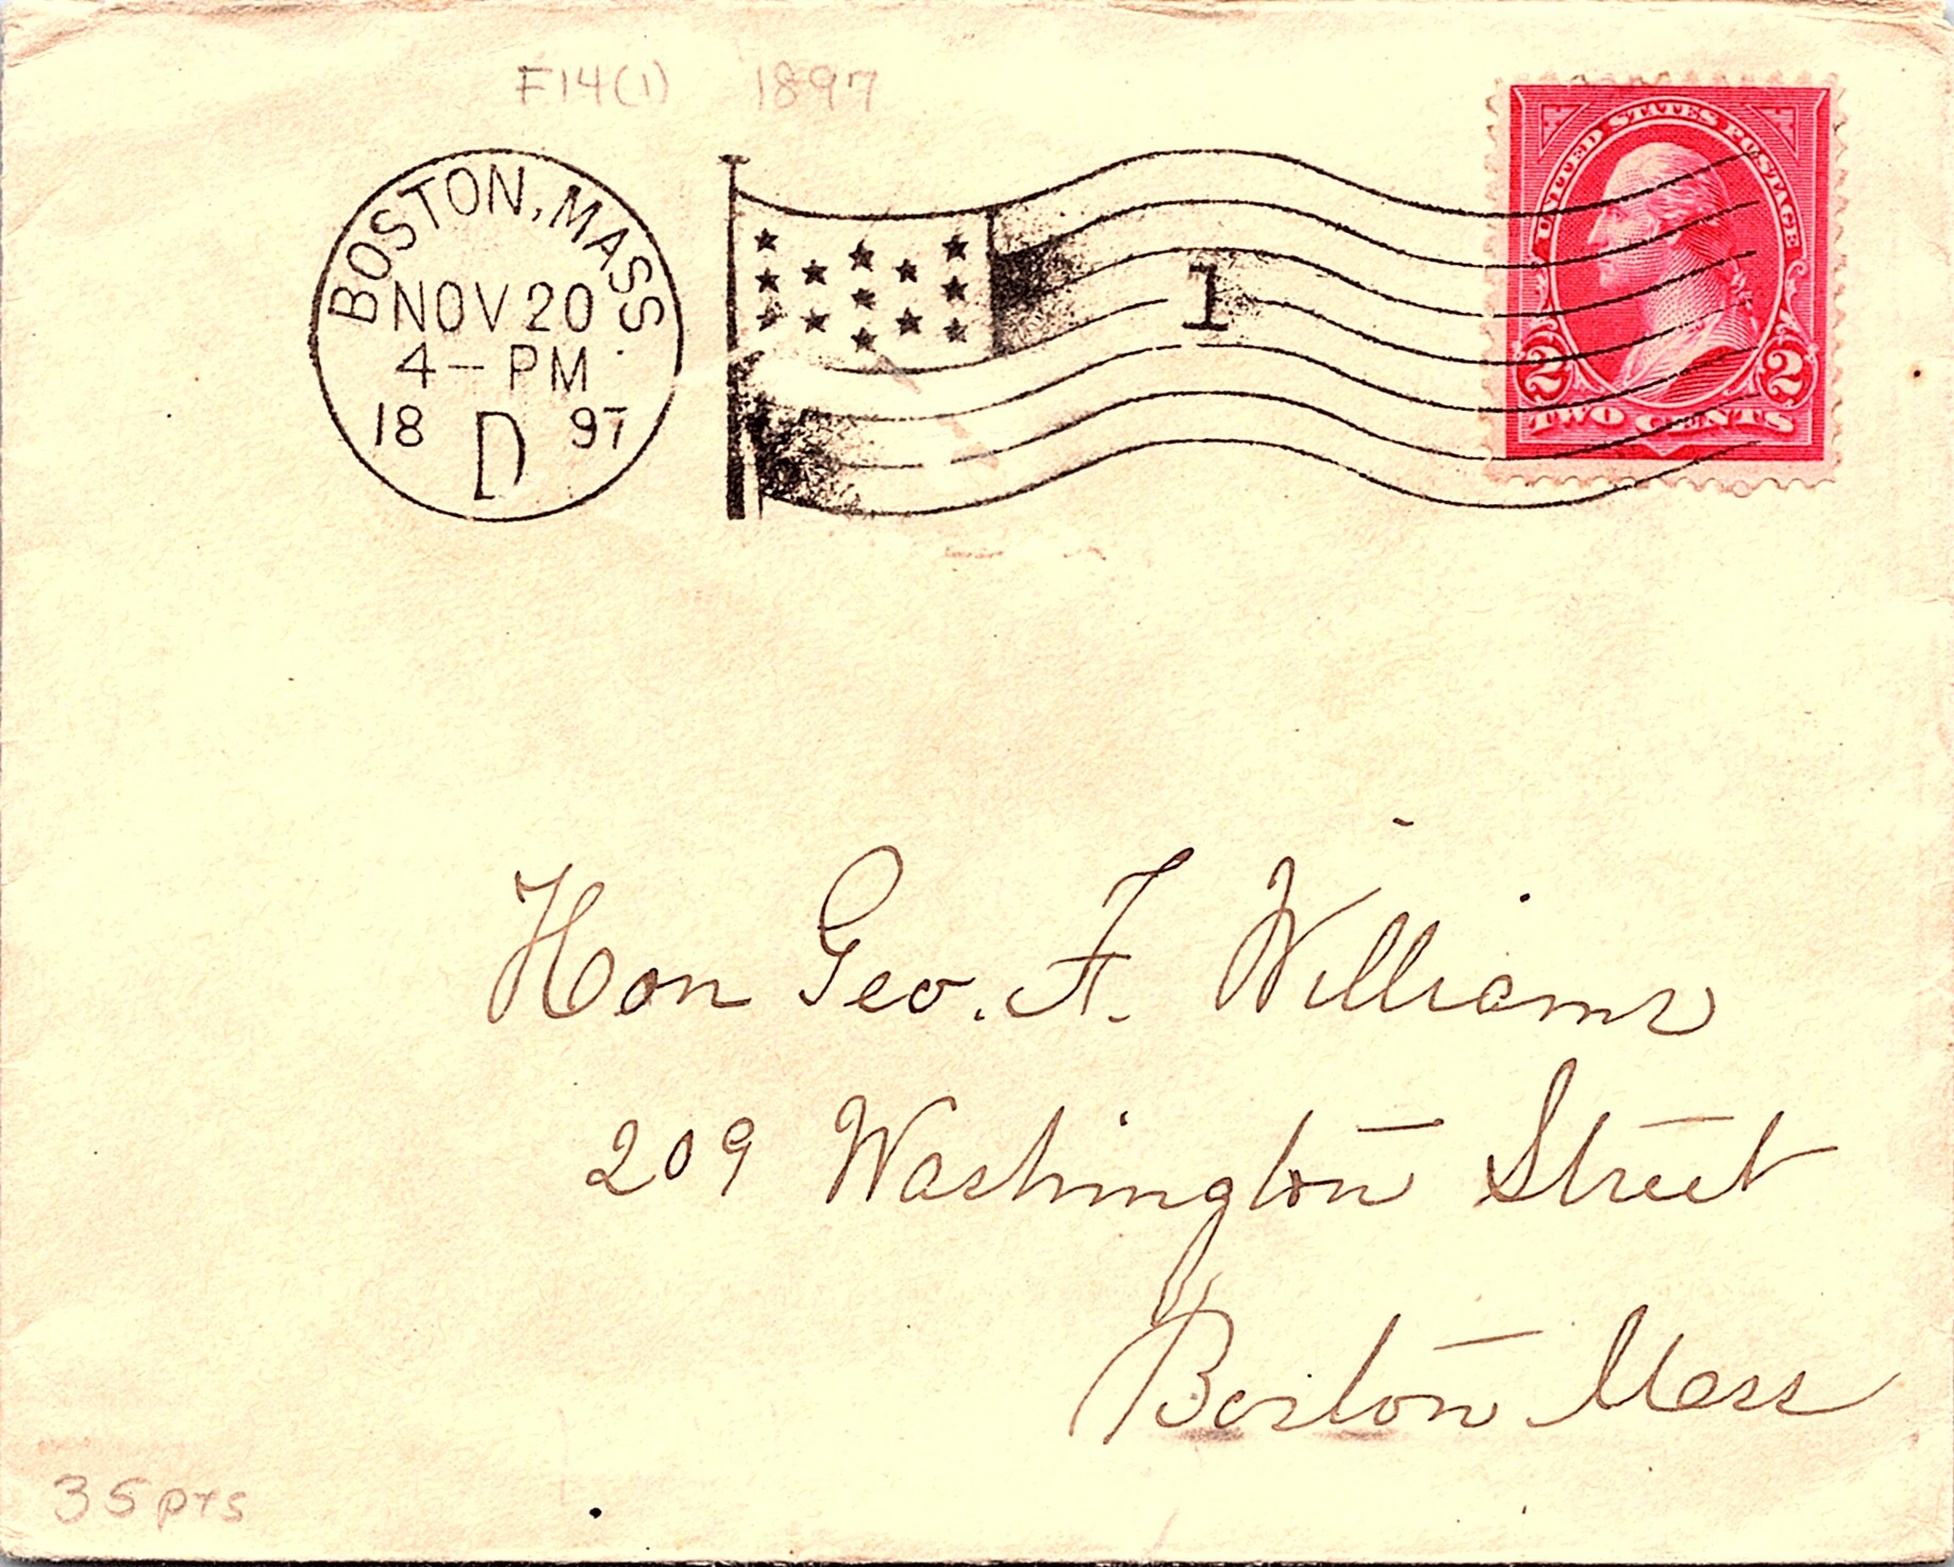 F14(1) 1897
BOSTON, MASS
NOV 20
4-PM
18 D 97
1
UNITED STATES POSTAGE
2 2
TWO CENTS
Hon Geo. F. Williams
209 Washington Street
Boston Mass
35 pts